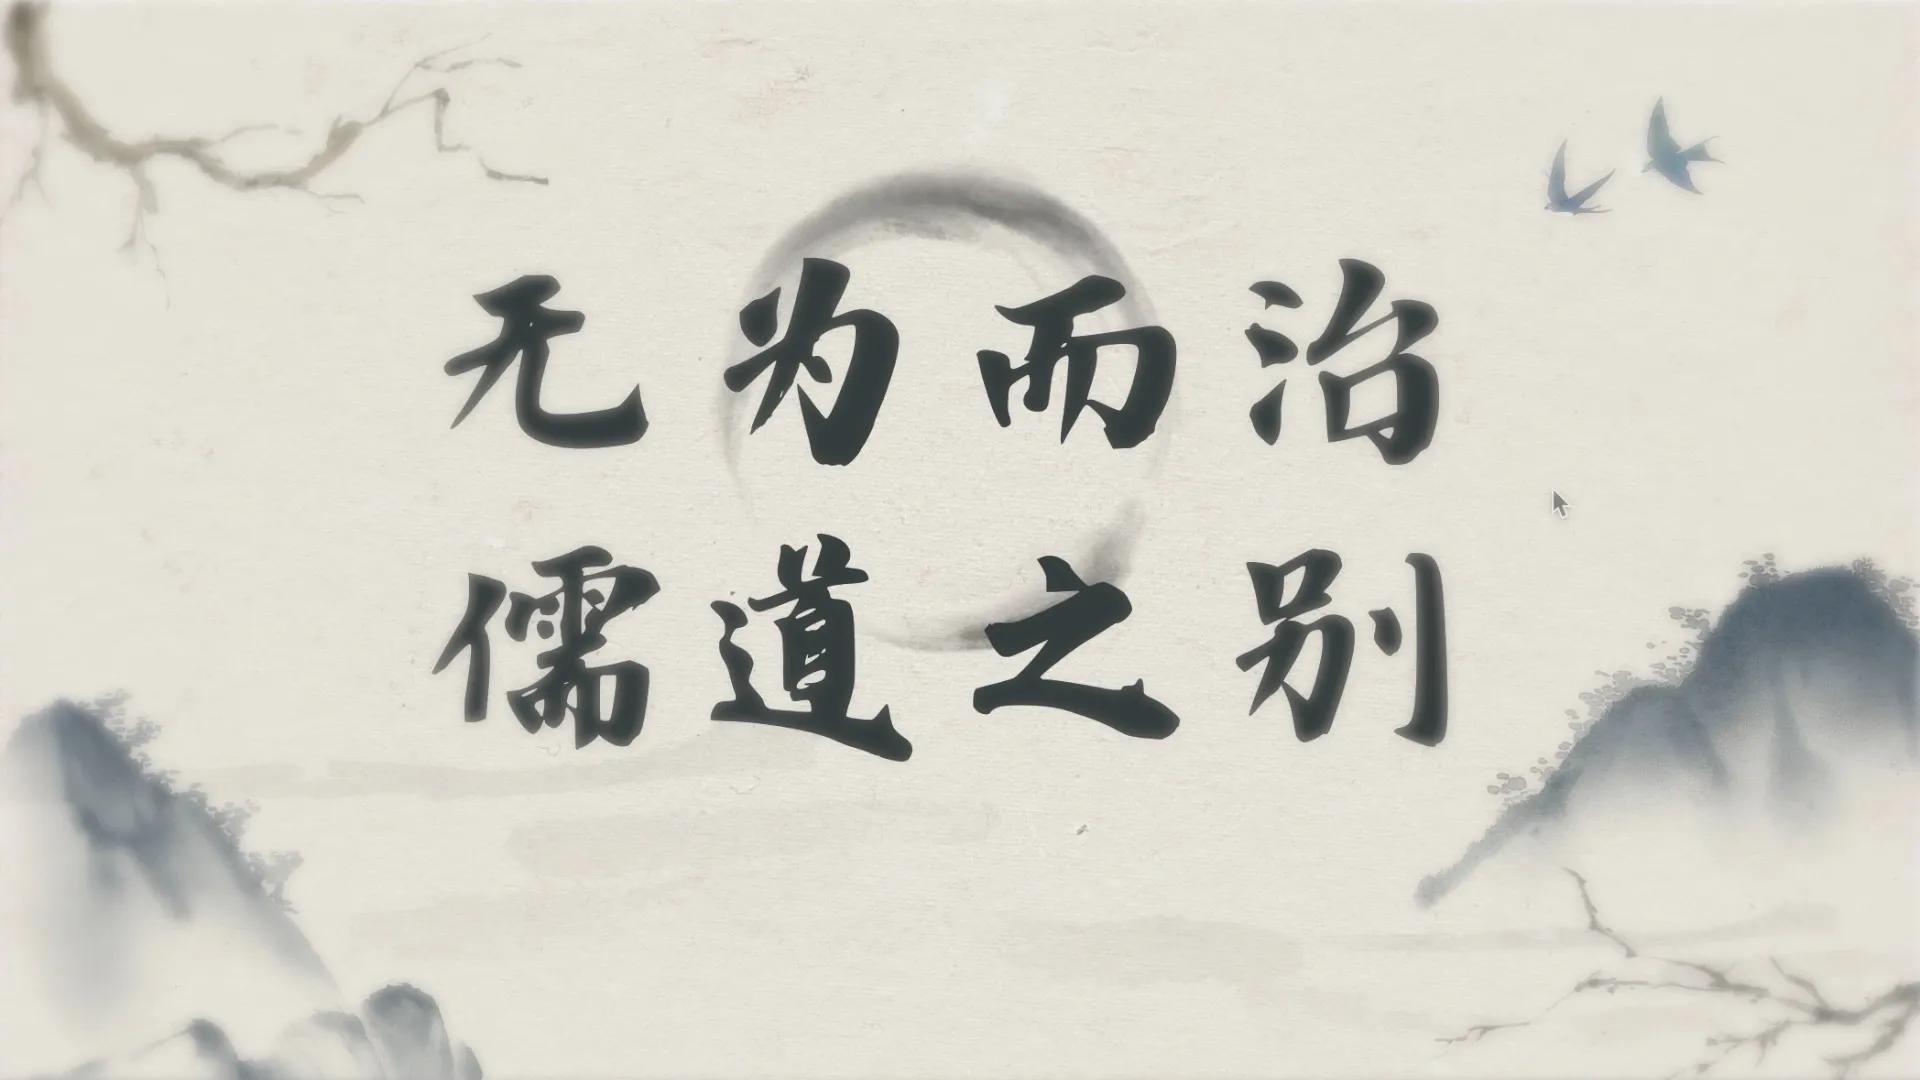 无为而治
儒道之别